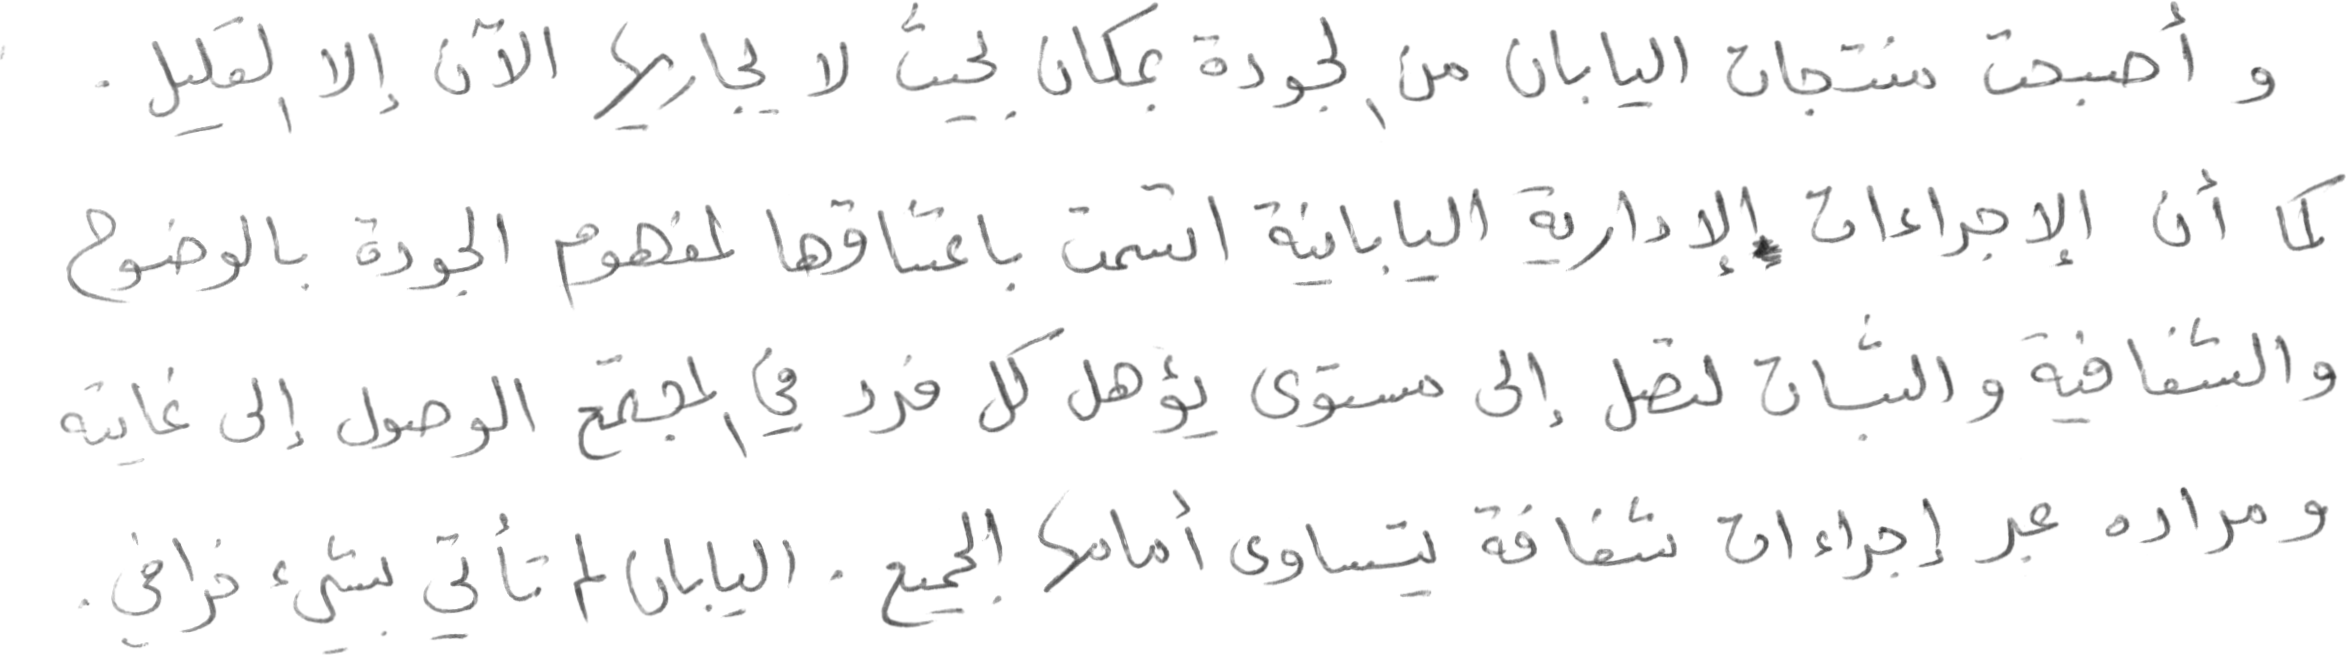 و أصبحت منتجات اليابان من الجودة بمكان بحيث لا يجاريها الآن إلا القليل .
كما أن الإجراءات الإدارية اليابانية اتسمت باعتناقها لمفهوم الجودة بالوضوح
والشفافية والثبات لتصل إلى مستوى يؤهل كل فرد في المجتمع الوصول إلى غايته
ومراده عبر إجراءات شفافة يتساوى أمامها الجميع . اليابان لم تأتي بشيء خرافي .